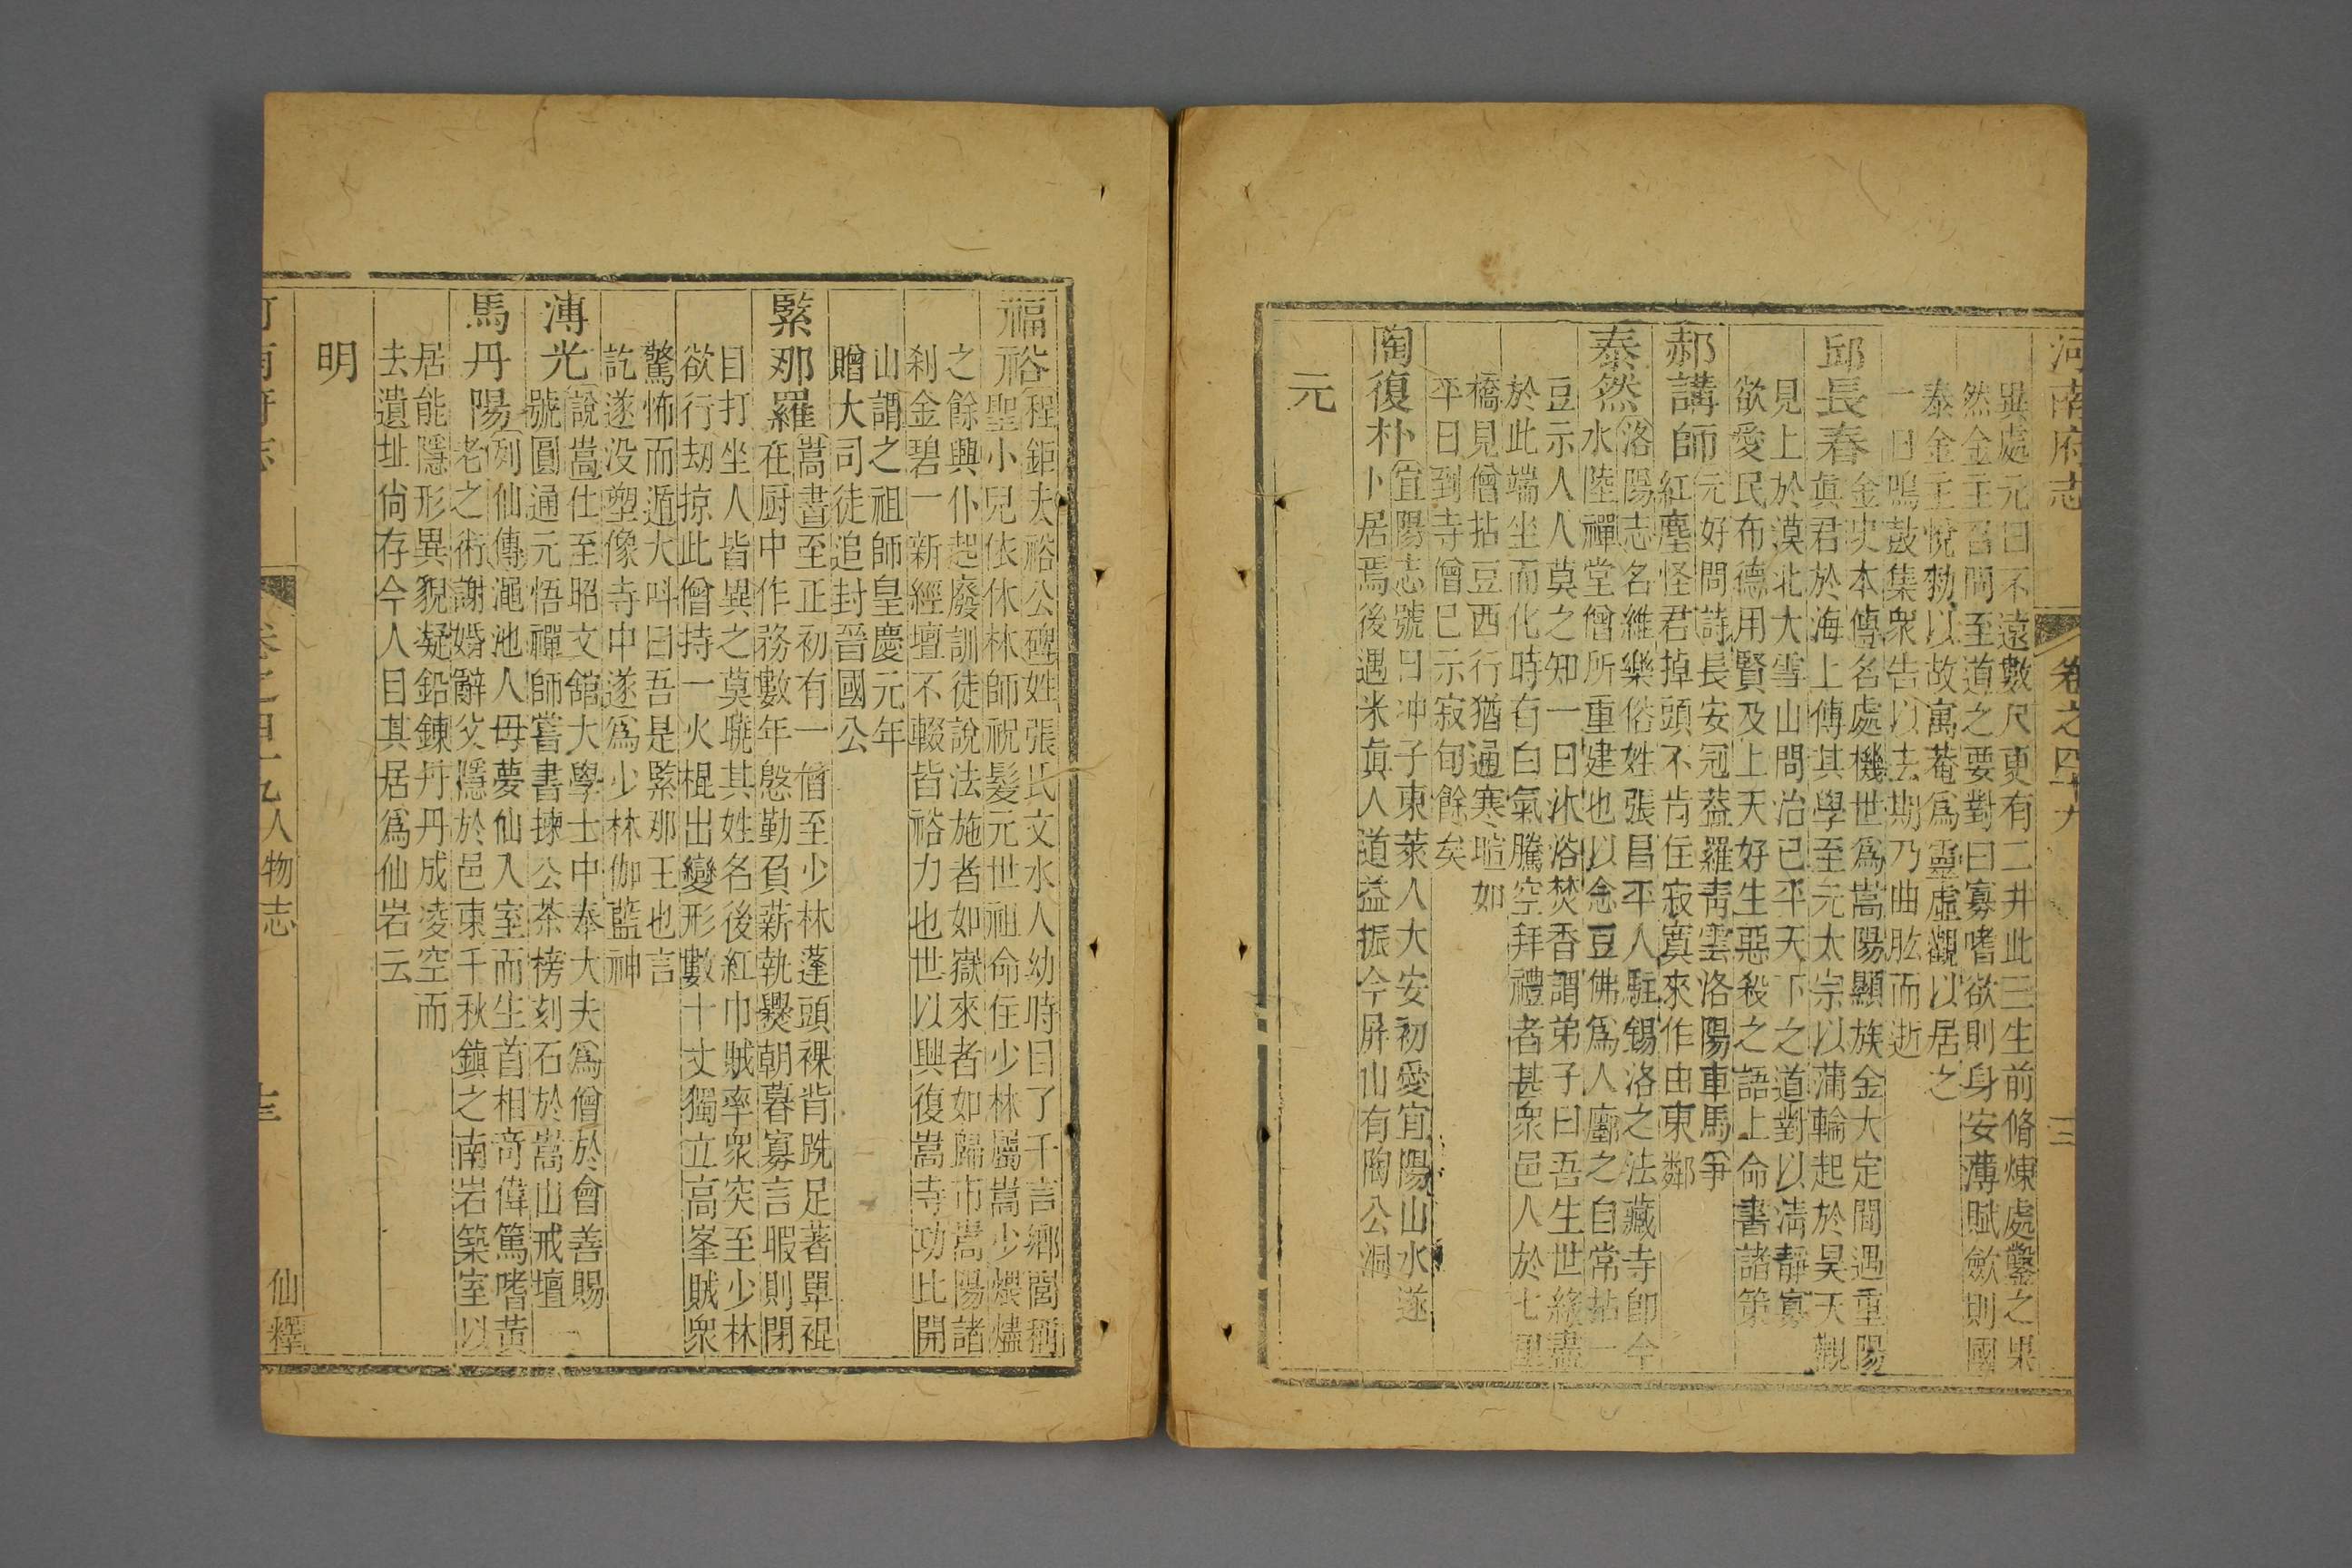 河南府志 卷之四十九 三
異處元曰不遠數尺更有二井此三生前脩煉處鑿之果
然金主召問至道之要對曰寡嗜欲則身安薄賦斂則國
泰金主悅勑以故寓菴爲靈虛觀以居之
一日鳴鼓集衆告以去期乃曲肱而逝
邱長春
金史本傳名處機世爲嵩陽顯族金大定間遇重陽
眞君於海上傳其學至元太宗以蒲輪起於昊天觀
見上於漠北大雪山問治已平天下之道對以淸靜寡
欲愛民布德用賢及上天好生惡殺之語上命書諸策
郝講師
元好問詩長安冠蓋羅靑雲洛陽車馬爭
紅塵怪君掉頭不肯住寂寞來作由東鄰
泰然
洛陽志名維樂俗姓張昌平人駐錫洛之法藏寺卽今
水陸禪堂僧所重建也以念豆佛爲人廛之自常拈一
豆示人人莫之知一日沐浴焚香謂弟子曰吾生世緣盡
於此端坐而化時有白氣騰空拜禮者甚衆邑人於七里
橋見僧拈豆西行猶通寒暄如
平日到寺僧已示寂旬餘矣
陶復朴
宜陽志號日冲子東萊人大安初愛宜陽山水遂
卜居焉後遇米眞人道益振今屛山有陶公洞
元
福裕
程鉅夫裕公碑姓張氏文水人幼時日了千言鄉閭稱
聖小兒依休林師祝髮元世祖命住少林屬嵩少煨燼
之餘興仆起廢訓徒說法施者如嶽來者如歸市嵩陽諸
刹金碧一新經壇不輟皆裕力也世以興復嵩寺功比開
山謂之祖師皇慶元年
贈大司徒追封晉國公
緊那羅
嵩書至正初有一僧至少林蓬頭裸背跣足著單裩
在厨中作務數年慇勤負薪執爨朝暮寡言暇則閉
目打坐人皆異之莫曉其姓名後紅巾賊率衆突至少林
欲行劫掠此僧持一火棍出變形數十丈獨立高峯賊衆
驚怖而遁大呌曰吾是緊那王也言
訖遂没塑像寺中遂爲少林伽藍神
溥光
說嵩仕至昭文舘大學士中奉大夫爲僧於會善賜
號圓通元悟禪師嘗書揀公茶榜刻石於嵩山戒壇
馬丹陽
列仙傳澠池人母夢仙入室而生首相奇偉篤嗜黃
老之術謝婚辭父隱於邑東千秋鎭之南岩築室以
居能隱形異貌凝鉛鍊丹丹成凌空而
去遺址尙存今人目其居爲仙岩云
明
河南府志 卷之四十九 人物志 仙釋